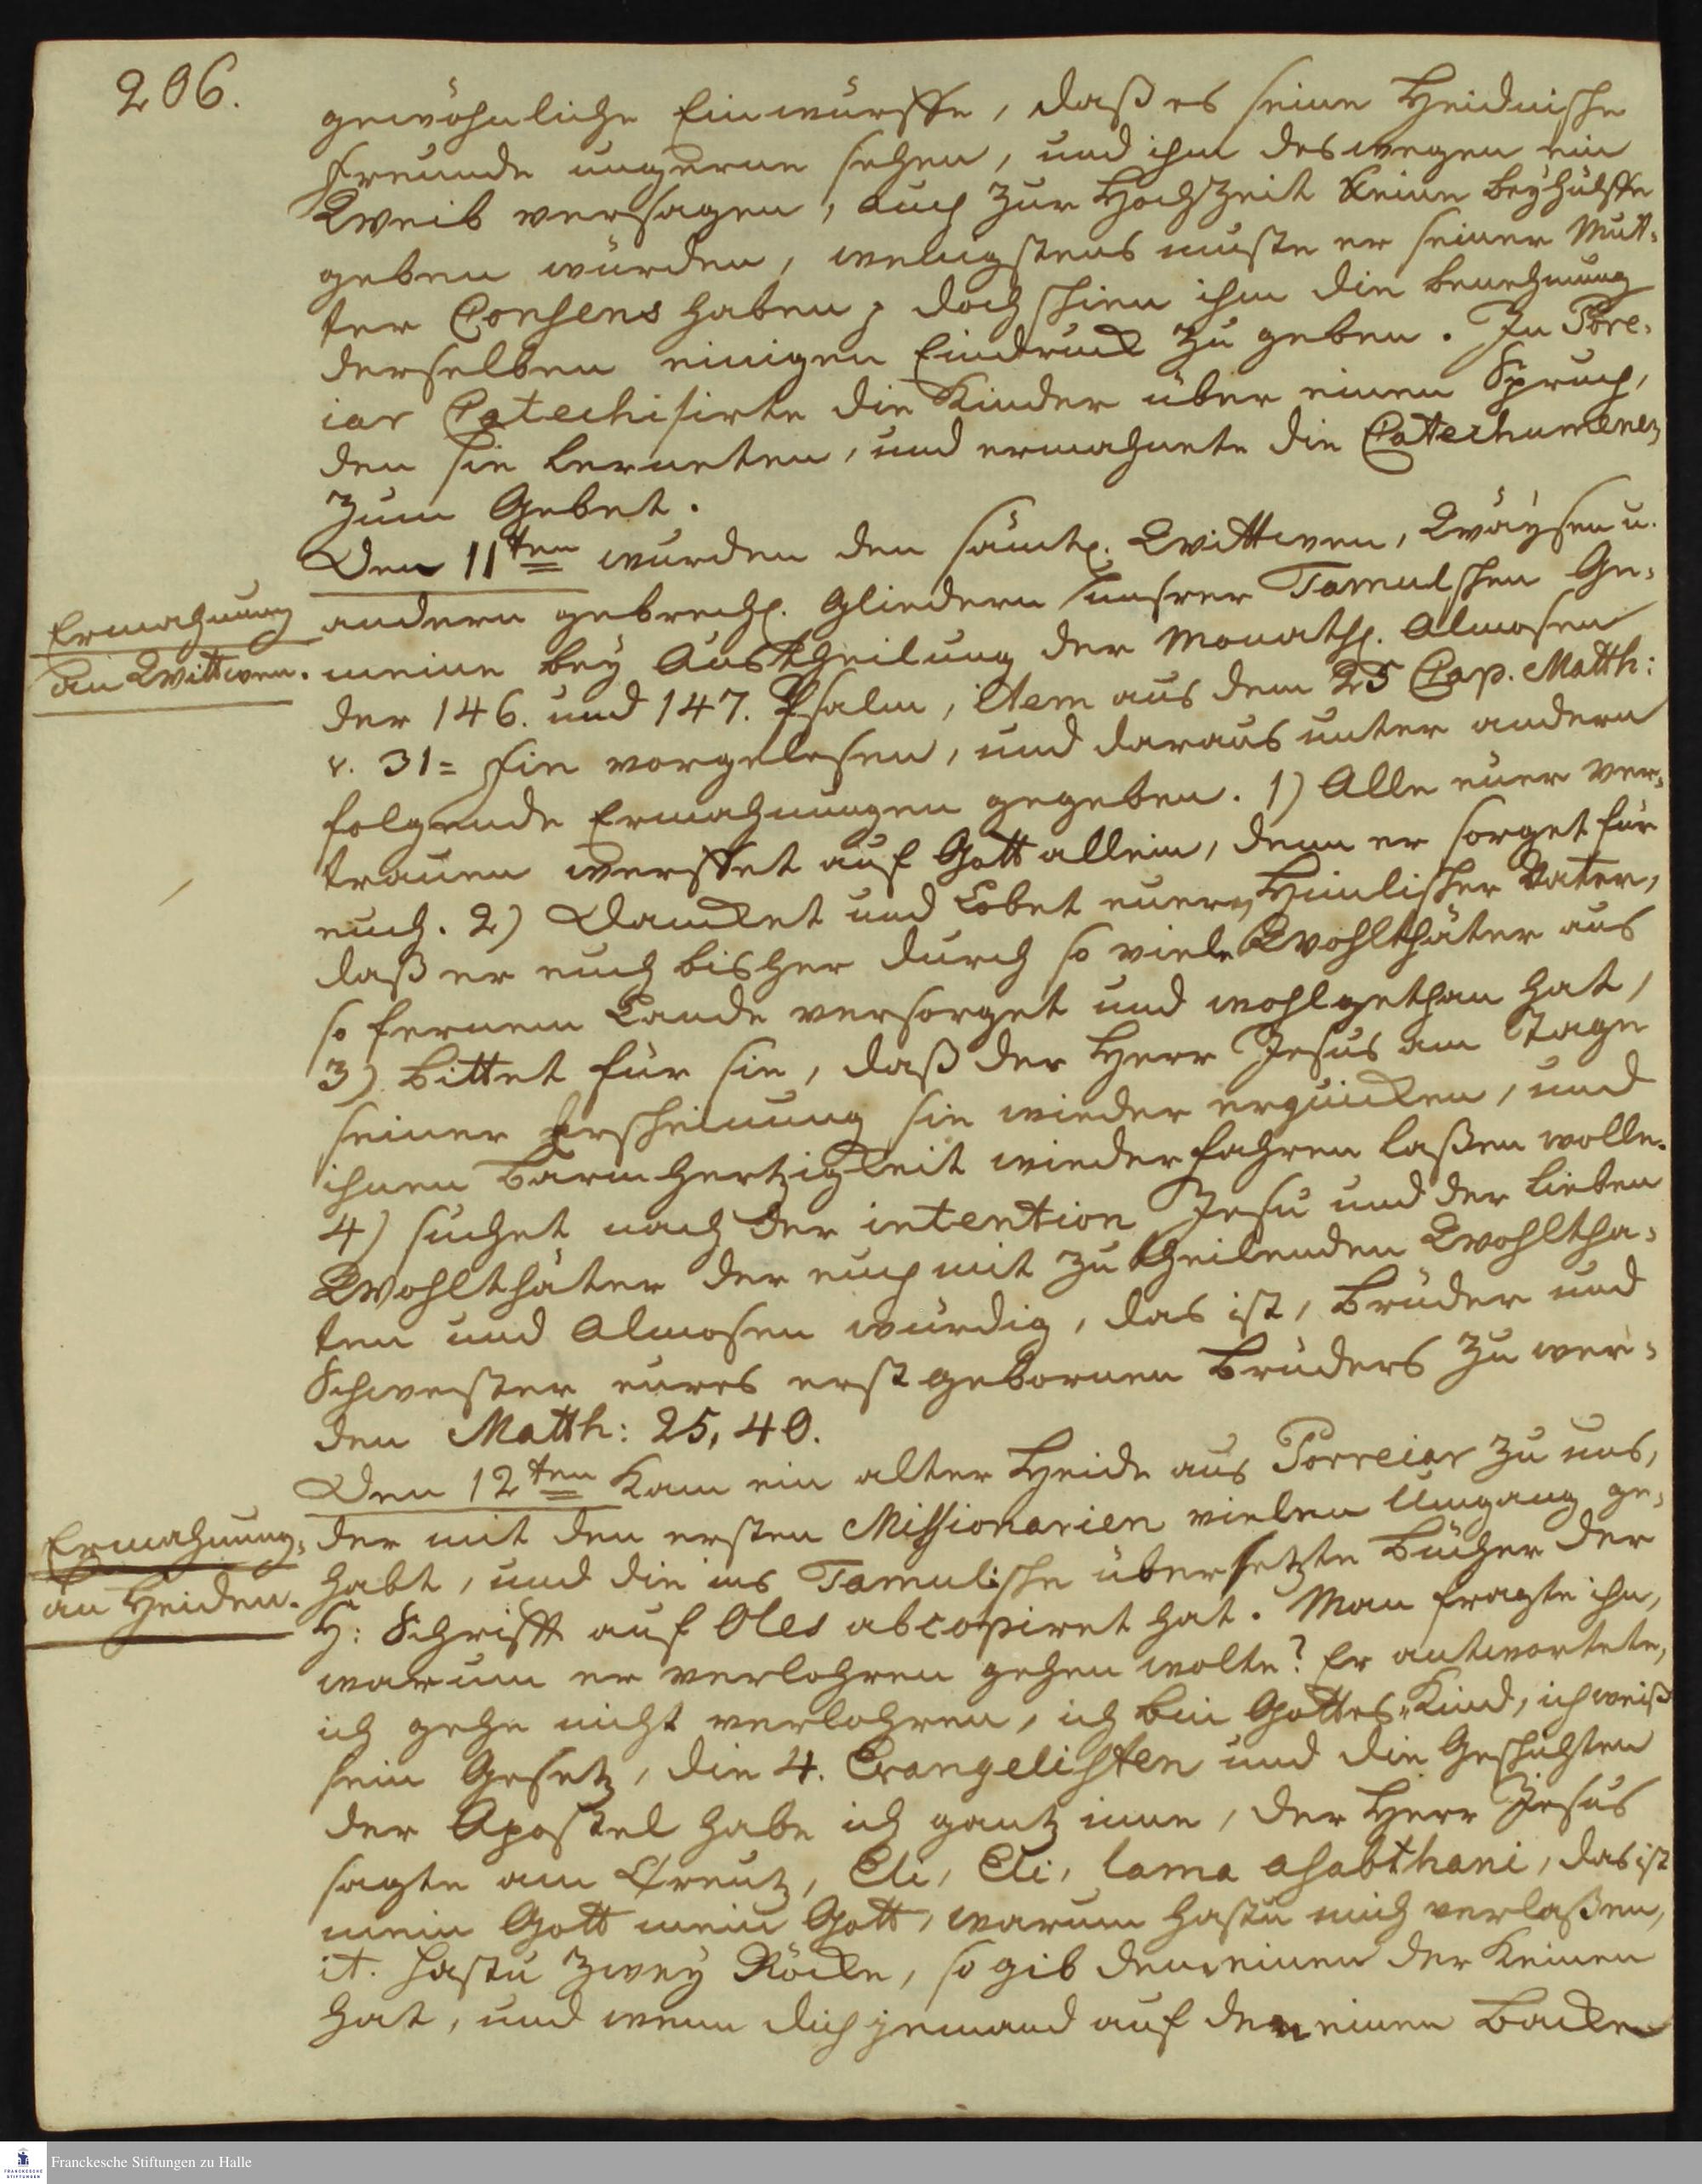 206.
gewöhnliche Einwürffe, daß es seine Heidnische
Freunde ungerne sehen, und ihm deswegen ein
Weib versagen, auch zur Hochzeit keine Beyhülffe
geben würden, wenigstens muste er seiner Mut-
ter Consens haben; doch schien ihm die Benehmung
derselben einigen Eindruck zu geben. In Pore-
iar Catechisirte die Kinder über einen Spruch,
den sie lerneten, und ermahnete die Catechumenen
zum Gebet.
Den 11ten wurden den sämtl. Wittwen, Wäysen u.
Ermahnung
an Wittwen.
andern gebrechl. Gliedern unsrer Tamulschen Ge-
meine bey Austheilung der Monathl. Almosen
der 146. und 147. Psalm, item aus dem 25 Cap. Matth:
v. 31= fin vorgelesen, und daraus unter andern
folgende Ermahnungen gegeben. 1) Alle euer Ver-
trauen werffet auf Gott allein, denn er sorget für
euch. 2) Dancket und Lobet euern Himlischer Vater,
daß er euch bisher durch so viele Wohlthäter aus
so fernem Lande versorget und wohlgethan hat,
3) Bittet für sie, daß der Herr Jesus am Tage
seiner Erscheinung sie wieder erquicken, und
ihnen Barmhertzigkeit wiederfahren laßen wolle.
4) suchet nach der intention Jesu und der lieben
Wohlthäter der euch mit zu theilenden Wohltha-
ten und Almosen würdig, das ist, Brüder und
Schwester eures erstgebornen Bruders zu wer-
den Matth: 25, 40.
Den 12ten kam ein alter Heide aus Porreiar zu uns,
Ermahnung
an Heiden.
der mit den ersten Missionarien vielen Umgang ge-
habt, und die ins Tamulische übersetzte Bücher der
H: Schrifft auf Oles abcopiret hat. Man fragte ihn,
warum er verlohren gehen wolte? Er antwortete,
ich gehe nicht verlohren, ich bin Gottes-Kind, ich weiß
sein Gesetz, die 4. Evangelisten und die Geschichten
der Apostel habe ich gantz inne, der Herr Jesus
sagte am Creutz, Eli, Eli, lama asabthani, das ist
mein Gott mein Gott, warum hastu mich verlaßen,
it. hastu zwey Röcke, so gib den einen der keinen
hat, und wenn dich jemand auf den einen Backen
Franckesche Stiftungen zu Halle